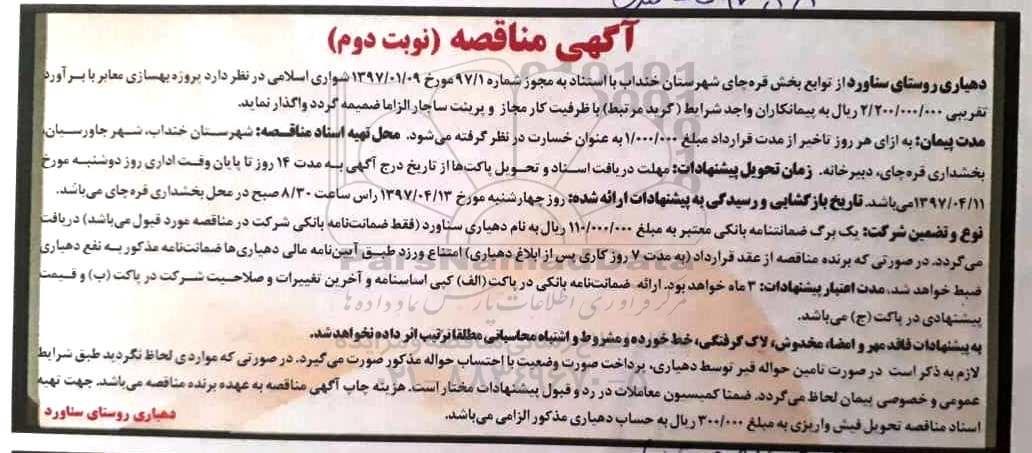 آگهی مناقصه (نوبت دوم)
دهیاری روستای سناورد از توابع بخش قره‌چای شهرستان خنداب با استناد به مجوز شماره ۹۷/۱ مورخ ۱۳۹۷/۰۱/۰۹ شواری اسلامی در نظر دارد پروژه بهسازی معابر با برآورد
تقریبی ۲/۲۰۰/۰۰۰/۰۰۰ ریال به پیمانکاران واجد شرایط (گرید مرتبط) با ظرفیت کار مجاز و پرینت ساجار الزاما ضمیمه گردد واگذار نماید.
مدت پیمان: به ازای هر روز تاخیر از مدت قرارداد مبلغ ۱/۰۰۰/۰۰۰ به عنوان خسارت در نظر گرفته می‌شود. محل تهیه اسناد مناقصه: شهرستان خنداب، شهر جاورسیان،
بخشداری قره‌چای، دبیرخانه. زمان تحویل پیشنهادات: مهلت دریافت اسناد و تحویل پاکت‌ها از تاریخ درج آگهی به مدت ۱۴ روز تا پایان وقت اداری روز دوشنبه مورخ
۱۳۹۷/۰۴/۱۱ می‌باشد. تاریخ بازگشایی و رسیدگی به پیشنهادات ارائه شده: روز چهارشنبه مورخ ۱۳۹۷/۰۴/۱۳ راس ساعت ۸/۳۰ صبح در محل بخشداری قره‌چای می‌باشد.
نوع و تضمین شرکت: یک برگ ضمانتنامه بانکی معتبر به مبلغ ۱۱۰/۰۰۰/۰۰۰ ریال به نام دهیاری سناورد (فقط ضمانت‌نامه بانکی شرکت در مناقصه مورد قبول می‌باشد) دریافت
می‌گردد. در صورتی که برنده مناقصه از عقد قرارداد (به مدت ۷ روز کاری پس از ابلاغ دهیاری) امتناع ورزد طبق آیین‌نامه مالی دهیاری‌ها ضمانت‌نامه مذکور به نفع دهیاری
ضبط خواهد شد، مدت اعتبار پیشنهادات: ۳ ماه خواهد بود. ارائه ضمانت‌نامه بانکی در پاکت (الف) کپی اساسنامه و آخرین تغییرات و صلاحیت شرکت در پاکت (ب) و قیمت
پیشنهادی در پاکت (ج) می‌باشد.
به پیشنهادات فاقد مهر و امضاء، مخدوش، لاک گرفتگی، خط خورده و مشروط و اشتباه محاسباتی مطلقا ترتیب اثر داده نخواهد شد.
لازم به ذکر است در صورت تامین حواله قیر توسط دهیاری، پرداخت صورت وضعیت با احتساب حواله مذکور صورت می‌گیرد. در صورتی که مواردی لحاظ نگردید طبق شرایط
عمومی و خصوصی پیمان لحاظ می‌گردد. ضمنا کمیسیون معاملات در رد و قبول پیشنهادات مختار است. هزینه چاپ آگهی مناقصه به عهده برنده مناقصه می‌باشد. جهت تهیه
اسناد مناقصه تحویل فیش واریزی به مبلغ ۳۰۰/۰۰۰ ریال به حساب دهیاری مذکور الزامی می‌باشد.
دهیاری روستای سناورد
ParsNamadData
مرکز فرآوری اطلاعات پارس نماد داده ها